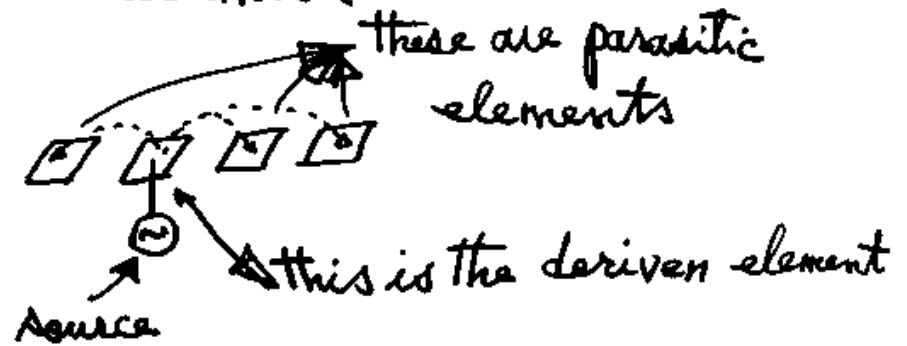 these are parasitic
elements
this is the deriven element
source